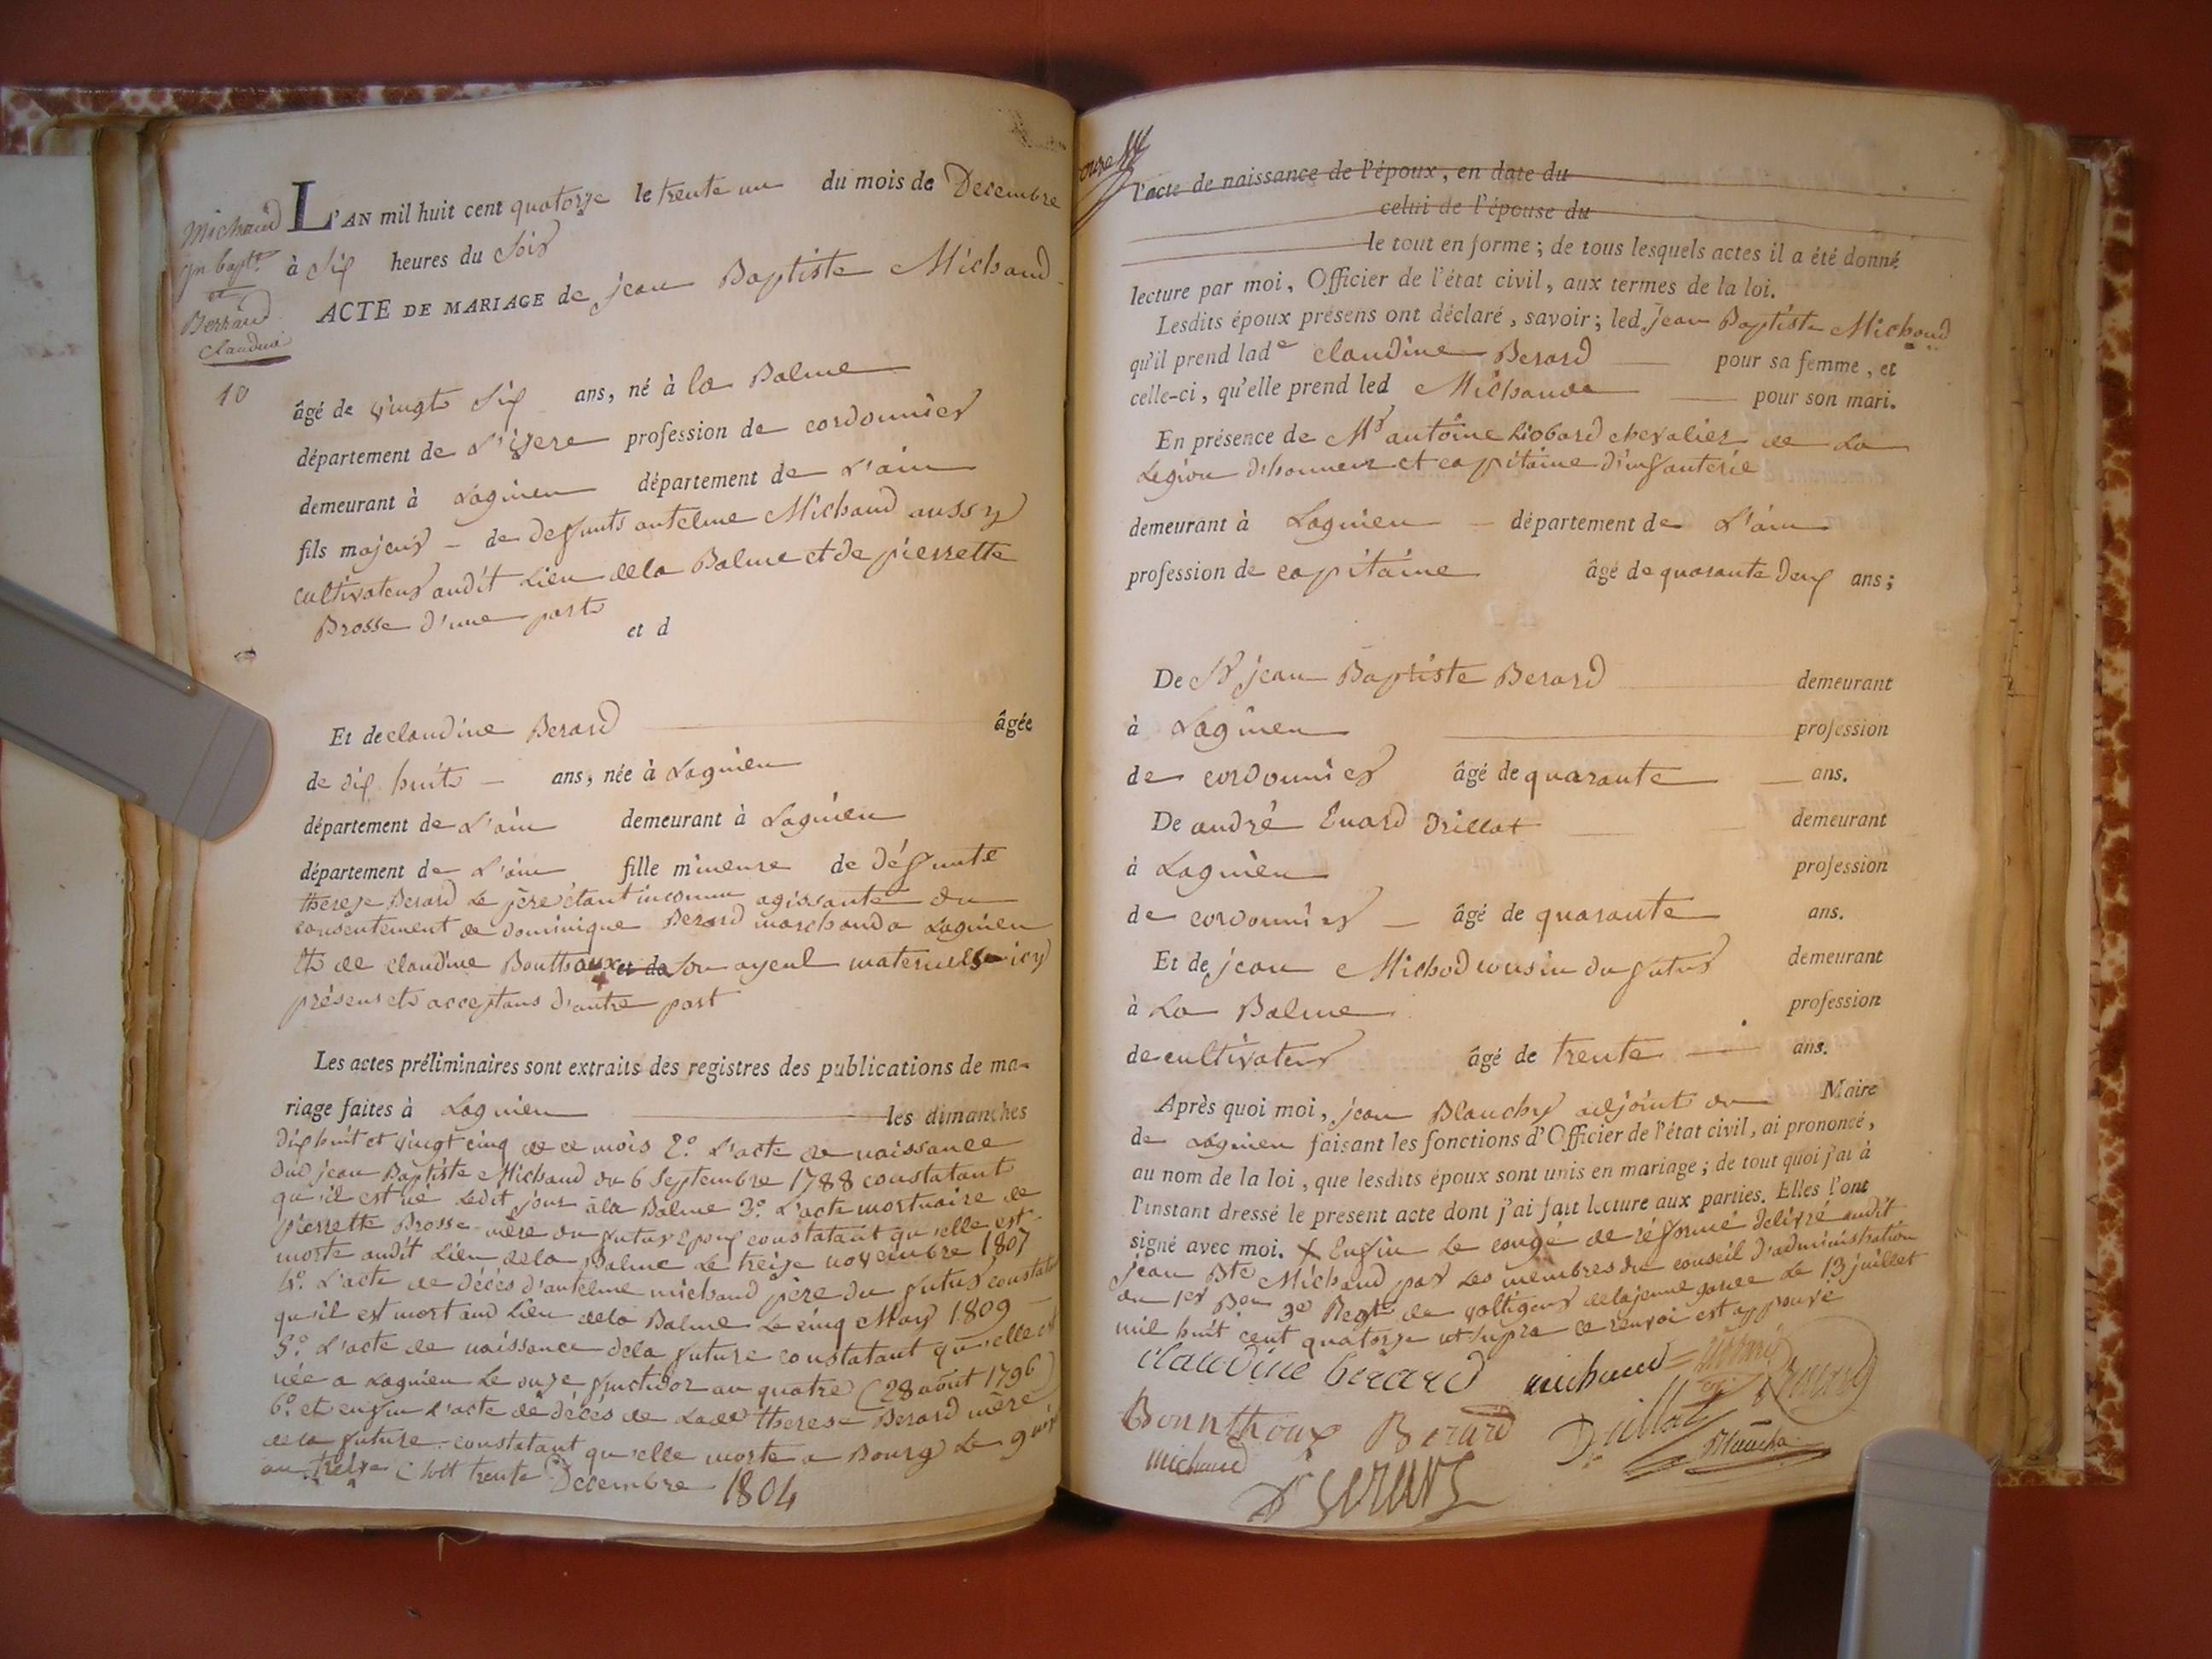 Michaud
jn bapte
et
Berrard
Claudine
10
L'AN mil huit cent quatorze le trente un du mois de Decembre
à Six heures du Soir
ACTE DE MARIAGE de jean Baptiste Michaud
âgé de vingt Six ans, né à la Balme
département de L'isere profession de cordonnier
demeurant à Lagnieu département de L'ain
fils majeur - de deffunts antelme Michaud aussy
cultivateur audit Lieu dela Balme et de pierrette
Brosse d'une part
et d
Et de claudine Berard âgée
de dix huit - ans, née à Lagnieu
département de L'ain demeurant à Lagnieu
département de L'ain fille mineure de défunte
therese Berard Le père étant inconnu agissante du
consentement de dominique Berard marchand a Lagnieu
Et de claudine Bouthoux et de son ayeul maternels icy
présens et acceptans d'autre part
Les actes préliminaires sont extraits des registres des publications de ma-
riage faites à Lagnieu les dimanches
dix huit et vingt cinq de ce mois 2º L'acte de naissance
dud jean Baptiste Michaud du 6 Septembre 1788 constatant
qu'il est né Ledit jour à la Balme 3º L'acte mortuaire de
pierrette Brosse mère du futur Epoux constatant qu'elle est
morte audit Lieu dela Balme Le treize novembre 1807
4º L'acte de décès d'antelme michaud père du futur constatant
qu'il est mort aud Lieu dela Balme Le cinq May 1809
5º L'acte de naissance dela future constatant qu'elle est
née a Lagnieu Le onze fructidor an quatre (28 août 1796)
6º et enfin L'acte de décès de Lade therese Berard mère
dela future constatant qu'elle morte a Bourg Le 9
an treize (soit trente Decembre 1804
l'acte de naissance de l'époux, en date du
celui de l'épouse du
le tout en forme ; de tous lesquels actes il a été donné
lecture par moi, Officier de l'état civil, aux termes de la loi.
Lesdits époux présens ont déclaré, savoir ; led jean Baptiste Michaud
qu'il prend lade claudine Berard pour sa femme, et
celle-ci, qu'elle prend led Michaud pour son mari.
En présence de Mr antoine Liobard chevalier de La
Legion d'honneur et capitaine d'infanterie
demeurant à Lagnieu - département de L'ain
profession de capitaine âgé de quarante deux ans ;
De Sr jean Baptiste Berard demeurant
à Lagnieu profession
de cordonnier âgé de quarante ans.
De andré Evard Drillat demeurant
à Lagnieu profession
de cordonnier - âgé de quarante ans.
Et de jean Michod cousin du futur demeurant
à La Balme profession
de cultivateur âgé de trente ans.
Après quoi moi, jean Blanchy adjoint du Maire
de Lagnieu faisant les fonctions d'Officier de l'état civil, ai prononcé,
au nom de la loi, que lesdits époux sont unis en mariage ; de tout quoi j'ai à
l'instant dressé le présent acte dont j'ai fait lecture aux parties. Elles l'ont
signé avec moi. X Enfin Le congé de réforme délivré audit
jean Bte Michaud par Les membres du conseil d'administration
du 1er Bon 3e Regt de voltigeurs dela jeune garde Le 13 juillet
mil huit cent quatorze ut supra ce renvoi est approuvé
claudine berard michaud
Bonnthoux Berard Drillat Blancho
michaud